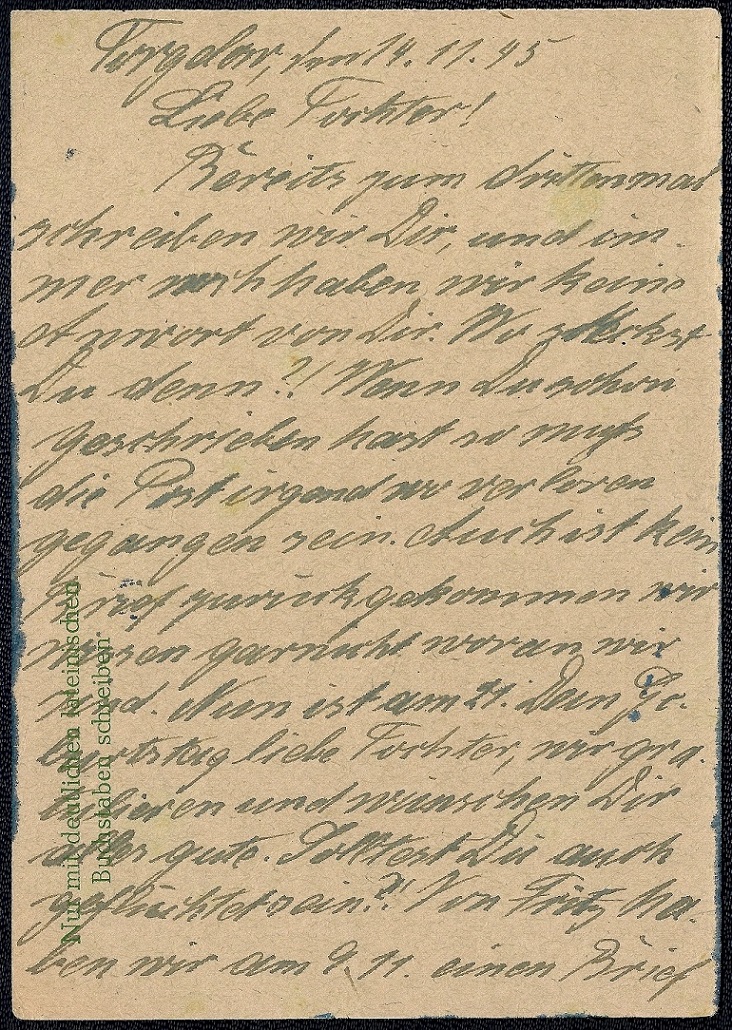 den 14.11.45
Liebe Tochter!
Bereits zum drittenmal
schreiben wir Dir, und im-
mer noch haben wir keine
Anwort von Dir. Wo steckst
Du denn?! Wenn Du schon
geschrieben hast so muß
die Post irgend wo verloren
gegangen sein. Auch ist kein
Brief zurückgekommen wir
wissen garnicht woran wir
sind. Nun ist am 21. Dein Ge-
burtstag liebe Tochter, wir gra-
tulieren und wünschen Dir
alles gute. Solltest Du auch
geflüchtet sein?! Von Fritz ha-
ben wir am 9.11. einen Brief
Nur mit deutlichen lateinischen
Buchstaben schreiben